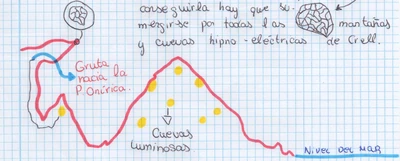 conseguirla hay que su-
mergirse por todas las montañas
y cuevas hipno-eléctricas de Crell.
Gruta
hacia la
P. Onírica.
Cuevas
luminosas
NIVEL DEL MAR